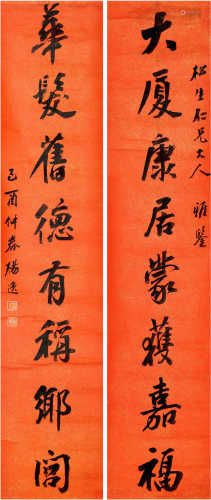 松生仁兄大人 雅鑒
大厦康居蒙獲嘉福
華髮舊德有稱鄉閭
己酉仲春楊逸